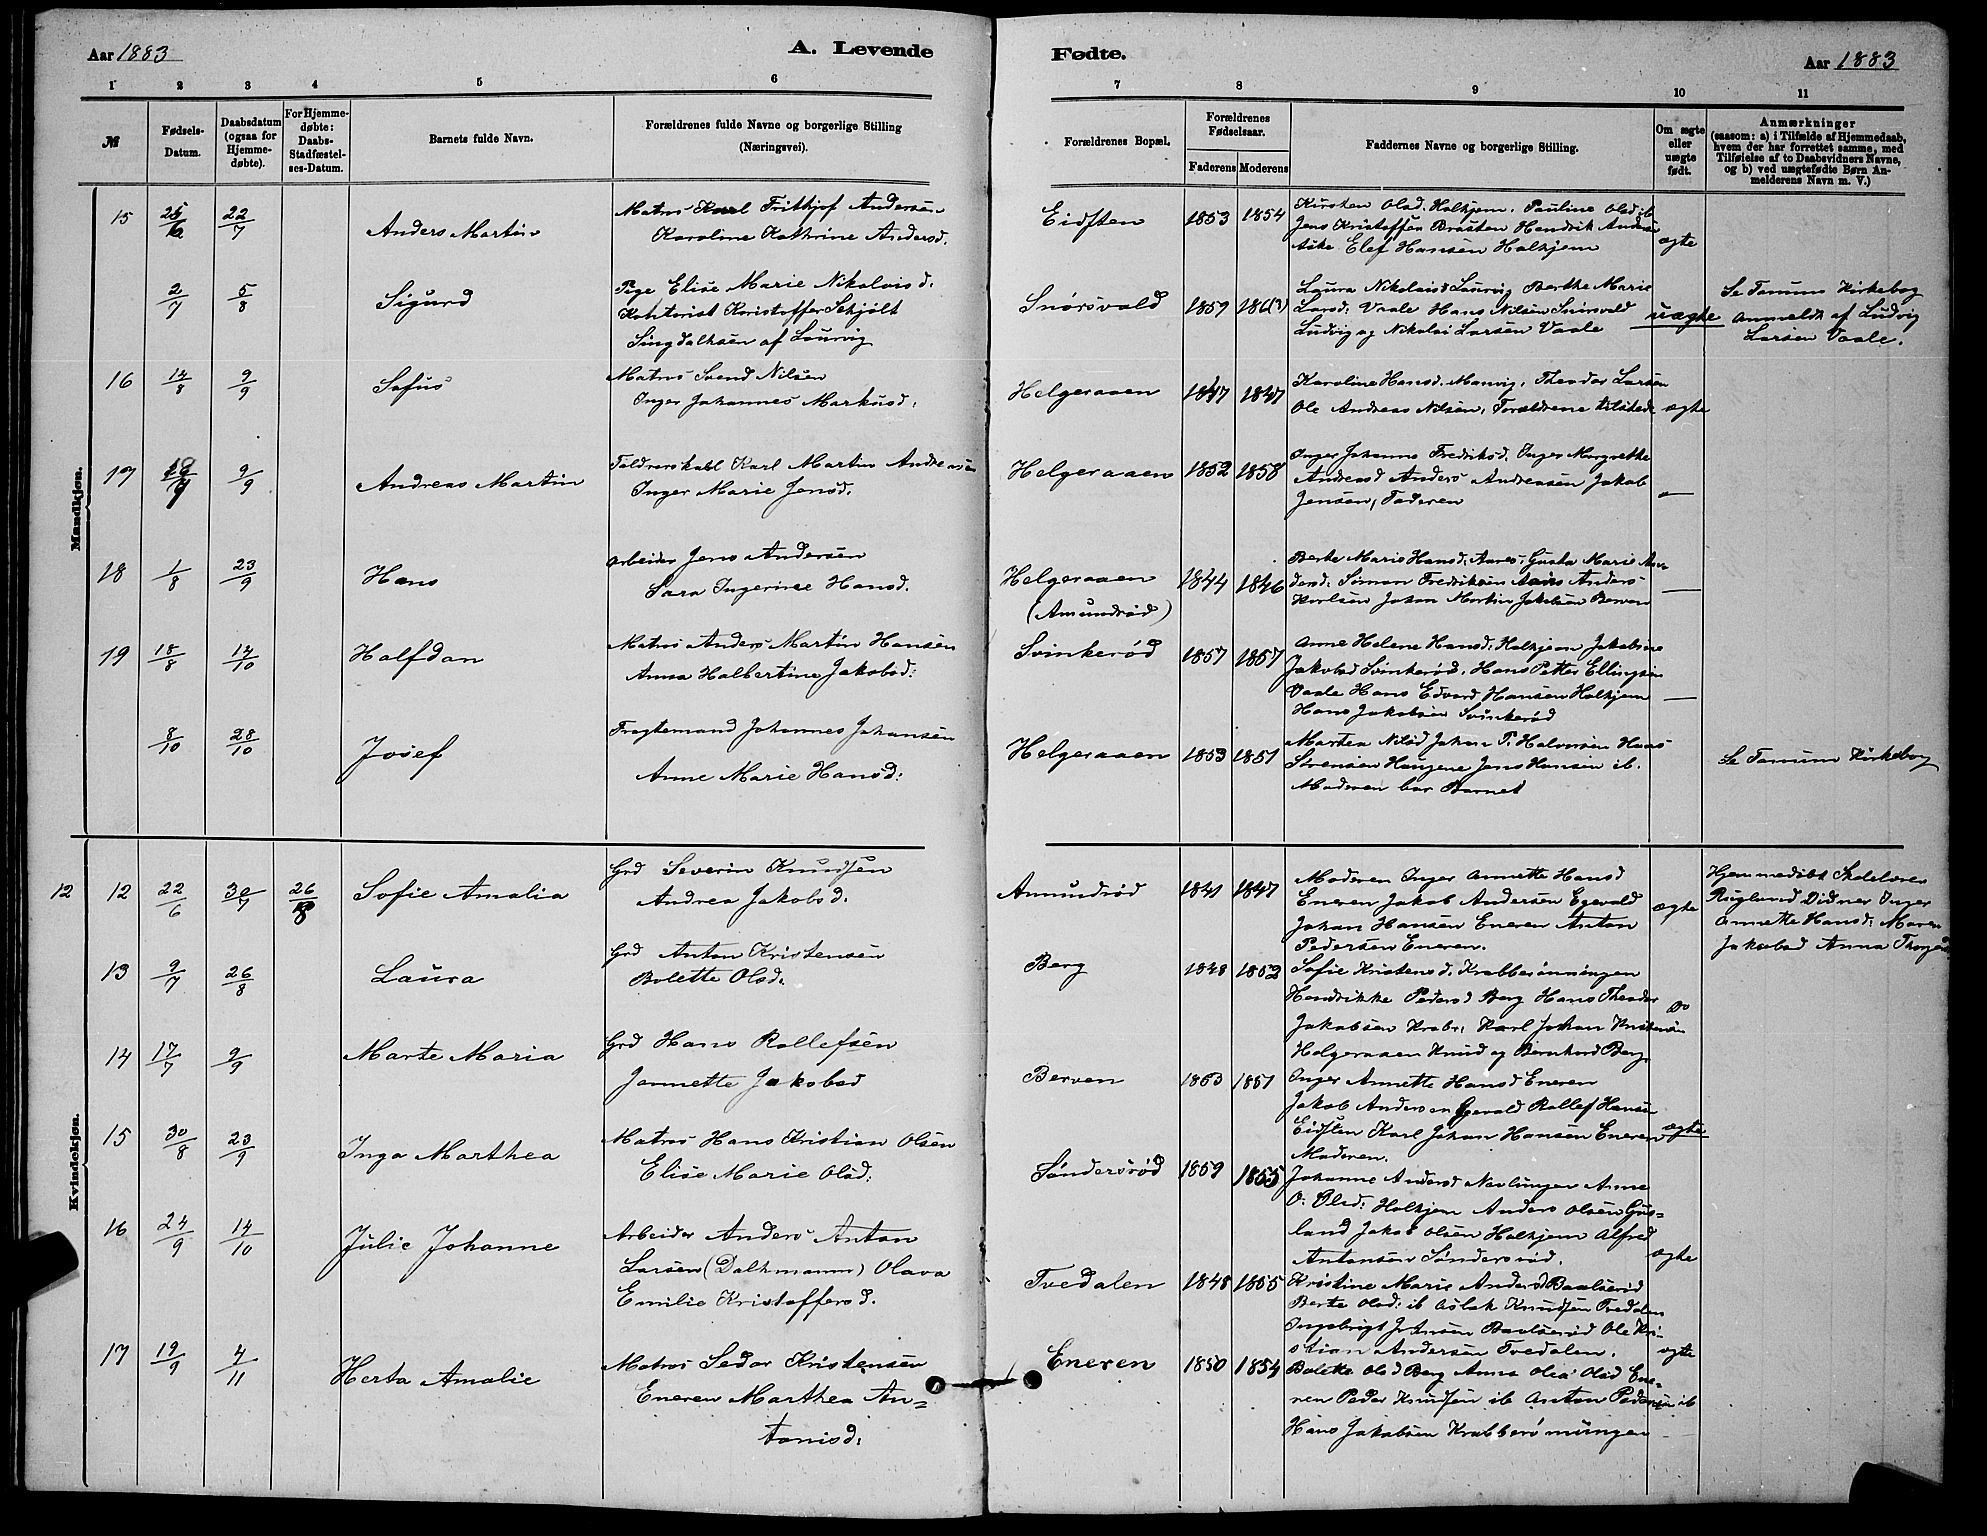 Aar 1883
A. Levende
1 2 3 4 5 6
№
Fødsels-
Datum.
Daabsdatum
(ogsaa for
Hjemme-
døbte).
For Hjemme-
døbte:
Daabs-
Stadfæstel-
ses-Datum.
Barnets fulde Navn.
Forældrenes fulde Navne og borgerlige Stilling
(Næringsvei).
Mandkjøn.
15 22/7 Anders Martin
Matros Karl Frithjof Andersen
Karoline Kathrine Andersd.
2/7 5/8 Sigurd
Pige Elise Marie Nikolaisd.
Kontorist Kristoffer Schjölt
Lingdalhsen af Laurvig
16 14/8 9/9 Sofus
Matros Svend Nilsen
Inger Johannes Markusd.
17 9/9 Andreas Martin
Toldrorskarl Karl Martin Andreasen
Inger Marie Jensd.
18 1/8 23/9 Hans
Arbeider Jens Andersen
Sara Ingerine Hansd.
19 18/8 14/10 Halfdan
Matros Anders Martin Hansen
Anna Halbertine Jakobsd:
8/10 28/10 Josef
Fragtemand Johannes Johansen
Anne Marie Hansd:
Kvindekjøn.
12 12 22/6 30/7 26/8 Sofie Amalia
Grd Severin Knudsen
Andrea Jakobsd.
13 9/7 26/8 Laura
Grd Anton Kristensen
Bolette Olsd.
14 17/7 9/9 Marte Maria
Grd Hans Rollefsen
Jannette Jakobsd
15 30/8 23/9 Inga Marthea
Matros Hans Kristian Olsen
Elise Marie Olsd.
16 24/9 14/10 Julie Johanne
Arbeider Anders Anton
Larsen (Dalhmann) Olava
Emilie Kristoffersd.
17 19/9 4/11 Herta Amalie
Matros Peder Kristensen
Eneren Marthea An=
tonisd:
Fødte.
Aar 1883
7 8 9 10 11
Forældrenes Bopæl.
Forældrenes
Fødselsaar.
Faderens Moderens
Faddernes Navne og borgerlige Stilling.
Om ægte
eller
uægte
født.
Anmærkninger
(saasom: a) i Tilfælde af Hjemmedaab,
hvem der har forrettet samme, med
Tilføielse af to Daabsvidners Navne,
og b) ved uægtefødte Børn An-
melderens Navn m. V.)
Eidsten 1853 1854
Kirsten Olsd. Halkjem. Pauline Olsd. ib
Jens Kristoffersen Braaten Hendrik Anders
Aske Elef Hansen Halkjem
ægte
Snørsvald 1859 186(3)
Laura Nikolaisd Laurvig Berthe Marie
Larsd: Vaale Hans Nilsen Snørsvald
Ludvig og Nikolai Larsen Vaale
uægte
Se Tanum Kirkebog
Anmeldt af Ludvig
Larsen Vaale.
Helgeraaen 1847 1847
Karoline Hansd. Manvig, Theodor Larsen
Ole Andreas Nilsen, Forældrene tilstede
ægte
Helgeraaen 1852 1858
Inger Johanne Fredriksd. Inger Margrethe
Andreasd Anders Andreasen Jakob
Jensen, Faderen
Helgeraaen 1844 1846
(Amundrød)
Berte Marie Hansd: Gusta Marie An=
dersd: Simon Fredriksen Anders
Karlsen Johan Martin Jakobsen Berven
Svinkerød 1857 1857
Anne Helene Hansd: Halkjem Jakobine
Jakobsd Svinkerød. Hans Petter Ellingsen
Vaale Hans Edvard Hansen Halkjem
Hans Jakobsen Svinkerød
Helgeraaen 1853 1851
Martea Nilsd Johan P. Halvorsen Hans
Sørensen Haugene Jens Hansen ib.
Moderen bar Barnet
Se Tanum Kirkebog
Amundrød 1841 1847
Moderen Inger Annette Hansd
Eneren Jakob Andersen Egevald
Johan Hansen Eneren Anton
Pedersen Eneren.
ægte
Hjemmedøbt Skolelærer
Ruglund Vidner Inger
Annette Hansd: Maren
Jakobsd Anna
Berg 1848 1852
Sofie Kristensd. Krabberønningen
Hendrikke Pedersd Berg Hans Theodor
Jakobsen Krabr: Karl Johan Kristensen
Helgeraaen Knud og Bernhard Berg.
Do
Berven 1853 1851
Inger Annette Hansd Eneren
Jakob Andersen Egevald Rollef Hansen
Eidsten Karl Johan Hansen Eneren
Moderen.
ægte
Søndersrød 1859 1855
Johanne Andersd Nevlungen Anne
O. Olsd: Halkjem Anders Olsen Gus=
land Jakob Olsen Halkjem Alfred
Antonsen Søndersrød.
ægte
Tvedalen 1848 1855
Kristine Marie Andersd Baalserød
Berte Olsd: ib Aslak Knudsen Tvedalen
Ingebrigt Jensen Baalserød Ole Kri=
stian Andersen Tvedalen.
ægte
Eneren 1850 1854
Bolette Olsd Berg Anna Olea Olsd Ene=
ren Peder Knudsen ib Anton Pedersen ib
Hans Jakobsen Krabberønningen